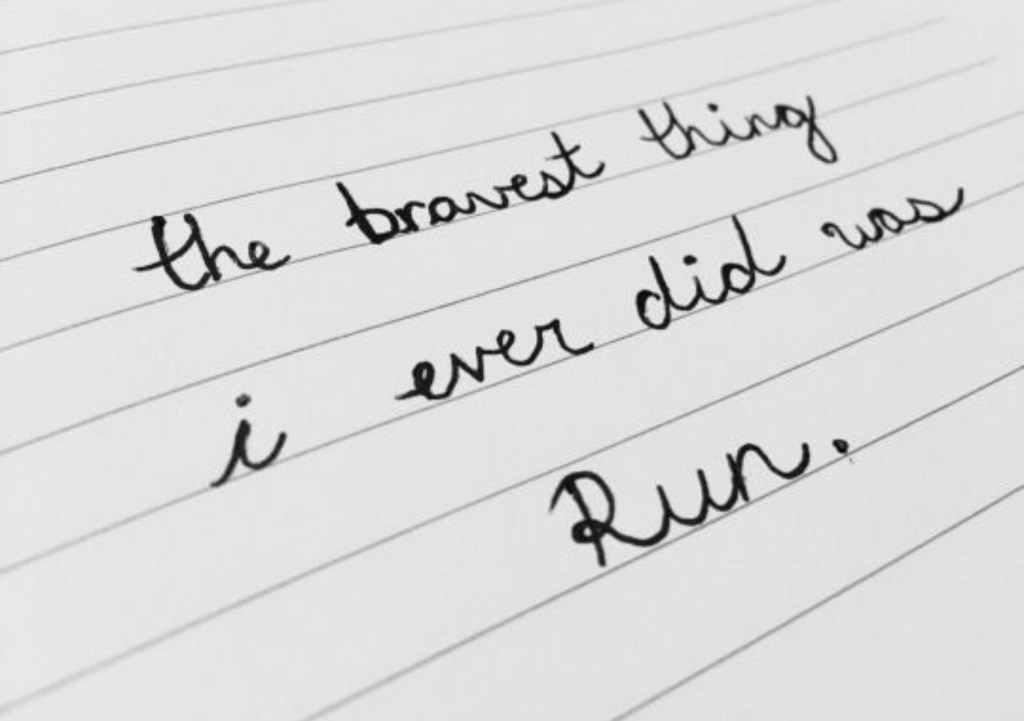 the bravest thing
i ever did was
Run.